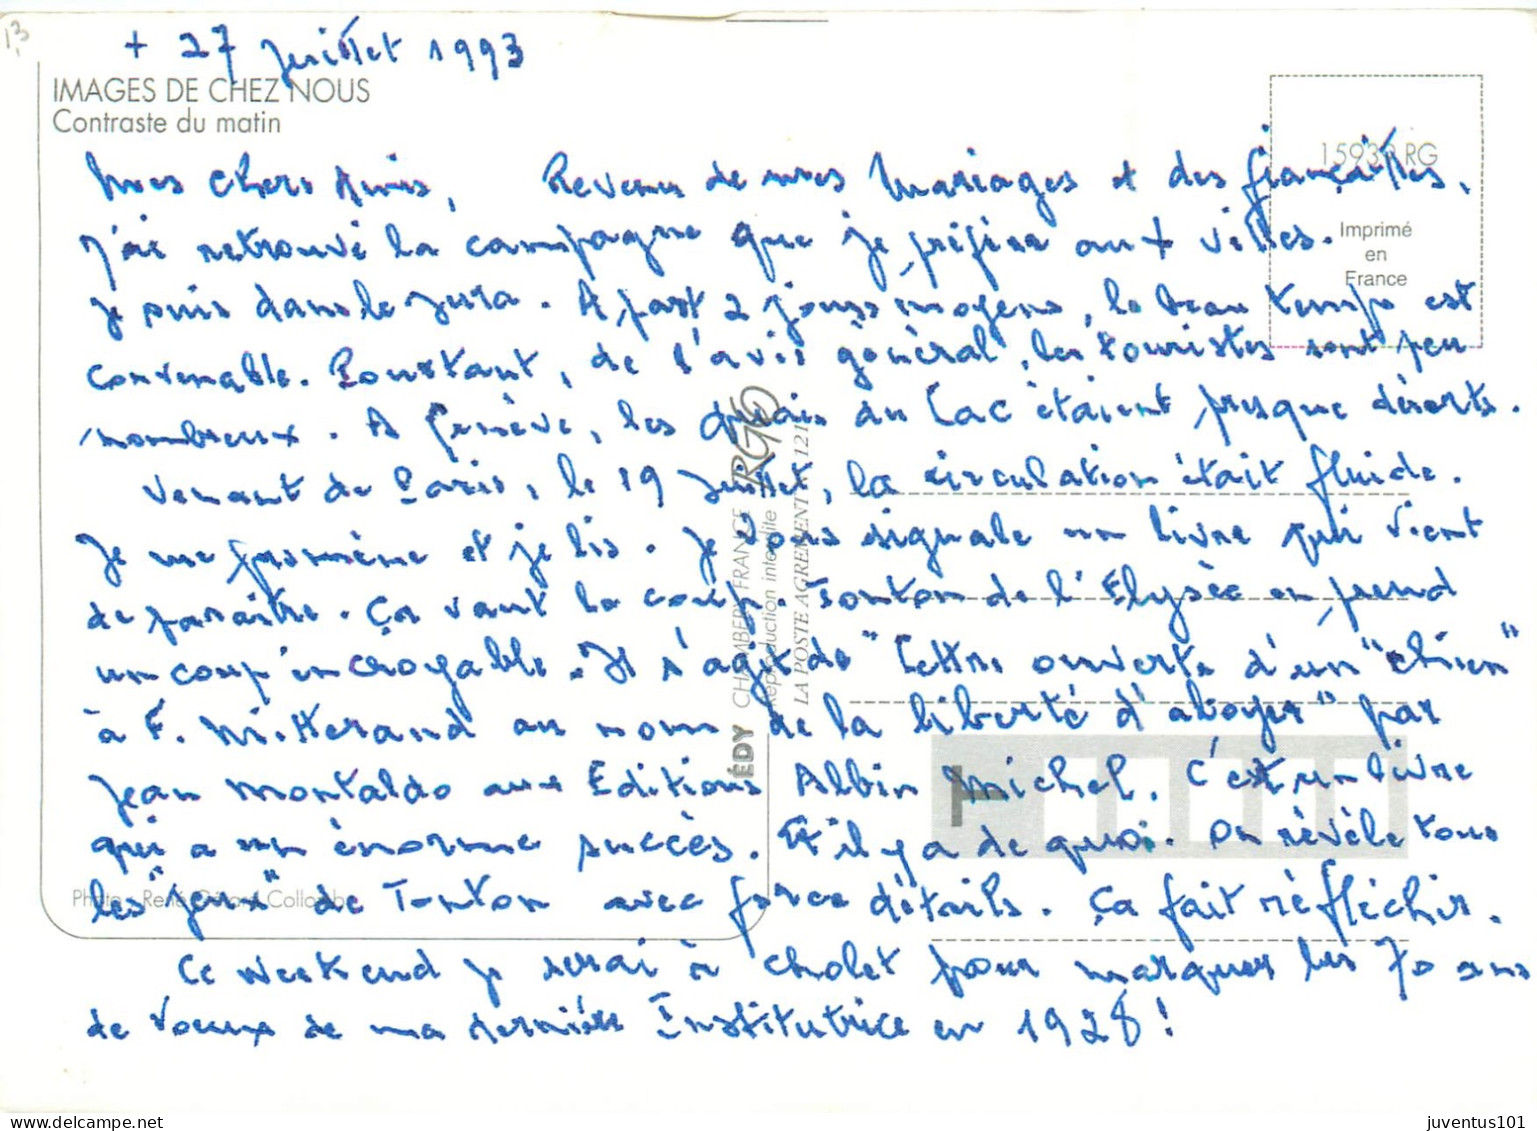 13
+ 27 juillet 1993
IMAGES DE CHEZ NOUS
Contraste du matin
15938 RG
Imprimé
en
France
Mes chers Amis, Revenu de mes Mariages et des fiançailles,
j'ai retrouvé la campagne que je préfère aux villes.
Je suis dans le Jura. A part 2 jours moyens, le beau temps est
convenable. Pourtant, de l'avis général, les touristes sont peu
nombreux. A Genève, les quais du Lac étaient presque déserts.
Venant de Paris, le 19 Juillet, la circulation était fluide.
Je me promène et je lis. Je vous signale un livre qui vient
de paraître. Ça vaut le coup. Tonton de l'Elysée en prend
un coup incroyable. Il s'agit de "Lettre ouverte d'un "chien"
à F. Mitterand au nom de la liberté d'aboyer" par
Jean Montaldo aux Editions Albin Michel. C'est un livre
qui a un énorme succès. Et il y a de quoi. On révèle tous
les "jeux" de Tonton avec force détails. Ça fait réfléchir.
Ce weekend je serai à Cholet pour marquer les 70 ans
de voeux de ma dernière Institutrice en 1928 !
ÉDY CHAMBERY FRANCE RG
Reproduction interdite
LA POSTE AGREMENT N° 121
Photo : René Gérard Collomb
juventus101